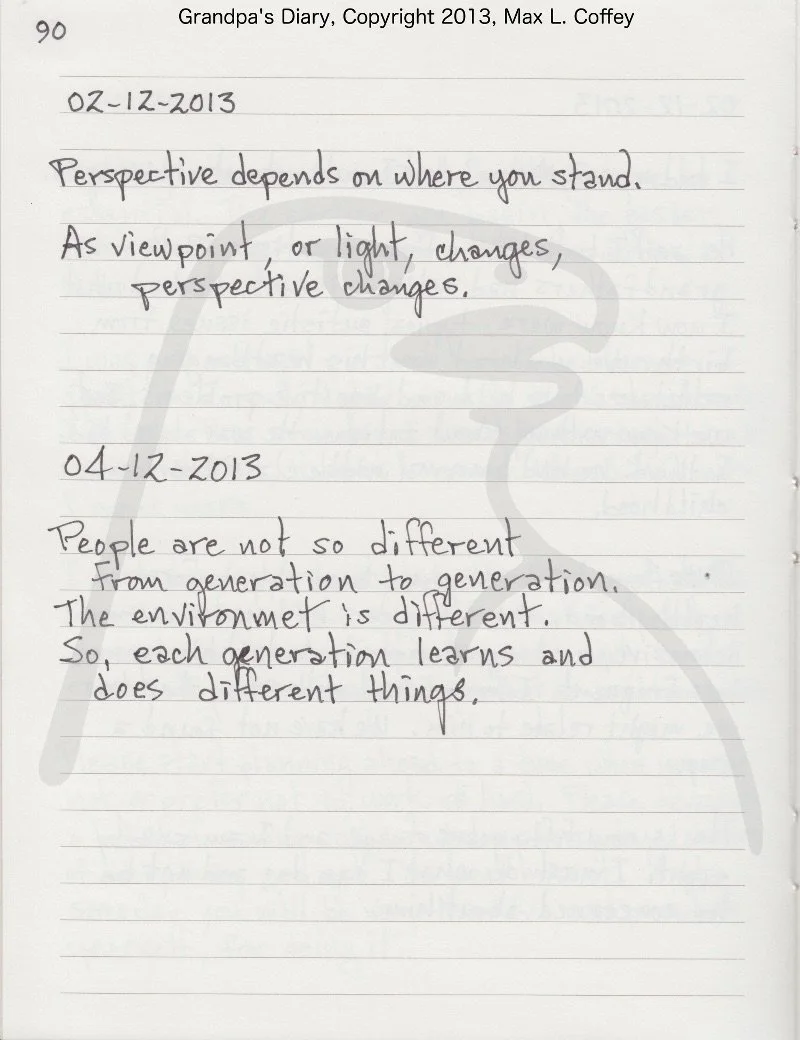 Grandpa's Diary, Copyright 2013, Max L. Coffey
90
02-12-2013
Perspective depends on where you stand.
As viewpoint, or light, changes,
perspective changes.
04-12-2013
People are not so different
from generation to generation.
The environmet is different.
So, each generation learns and
does different things.